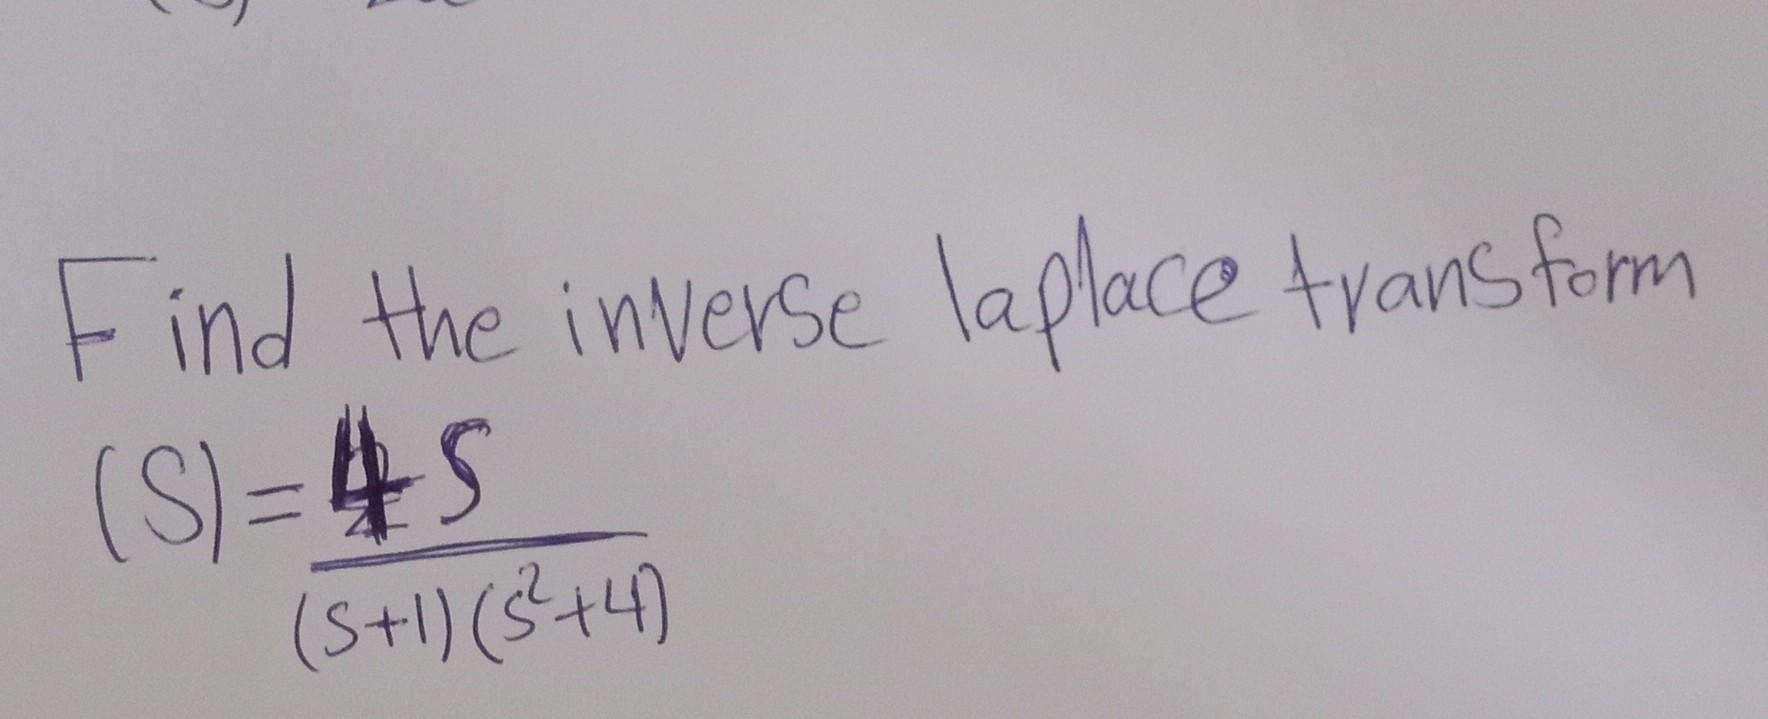 Find the inverse laplace transform
(S) = 4 S
(S+1) (S²+4)